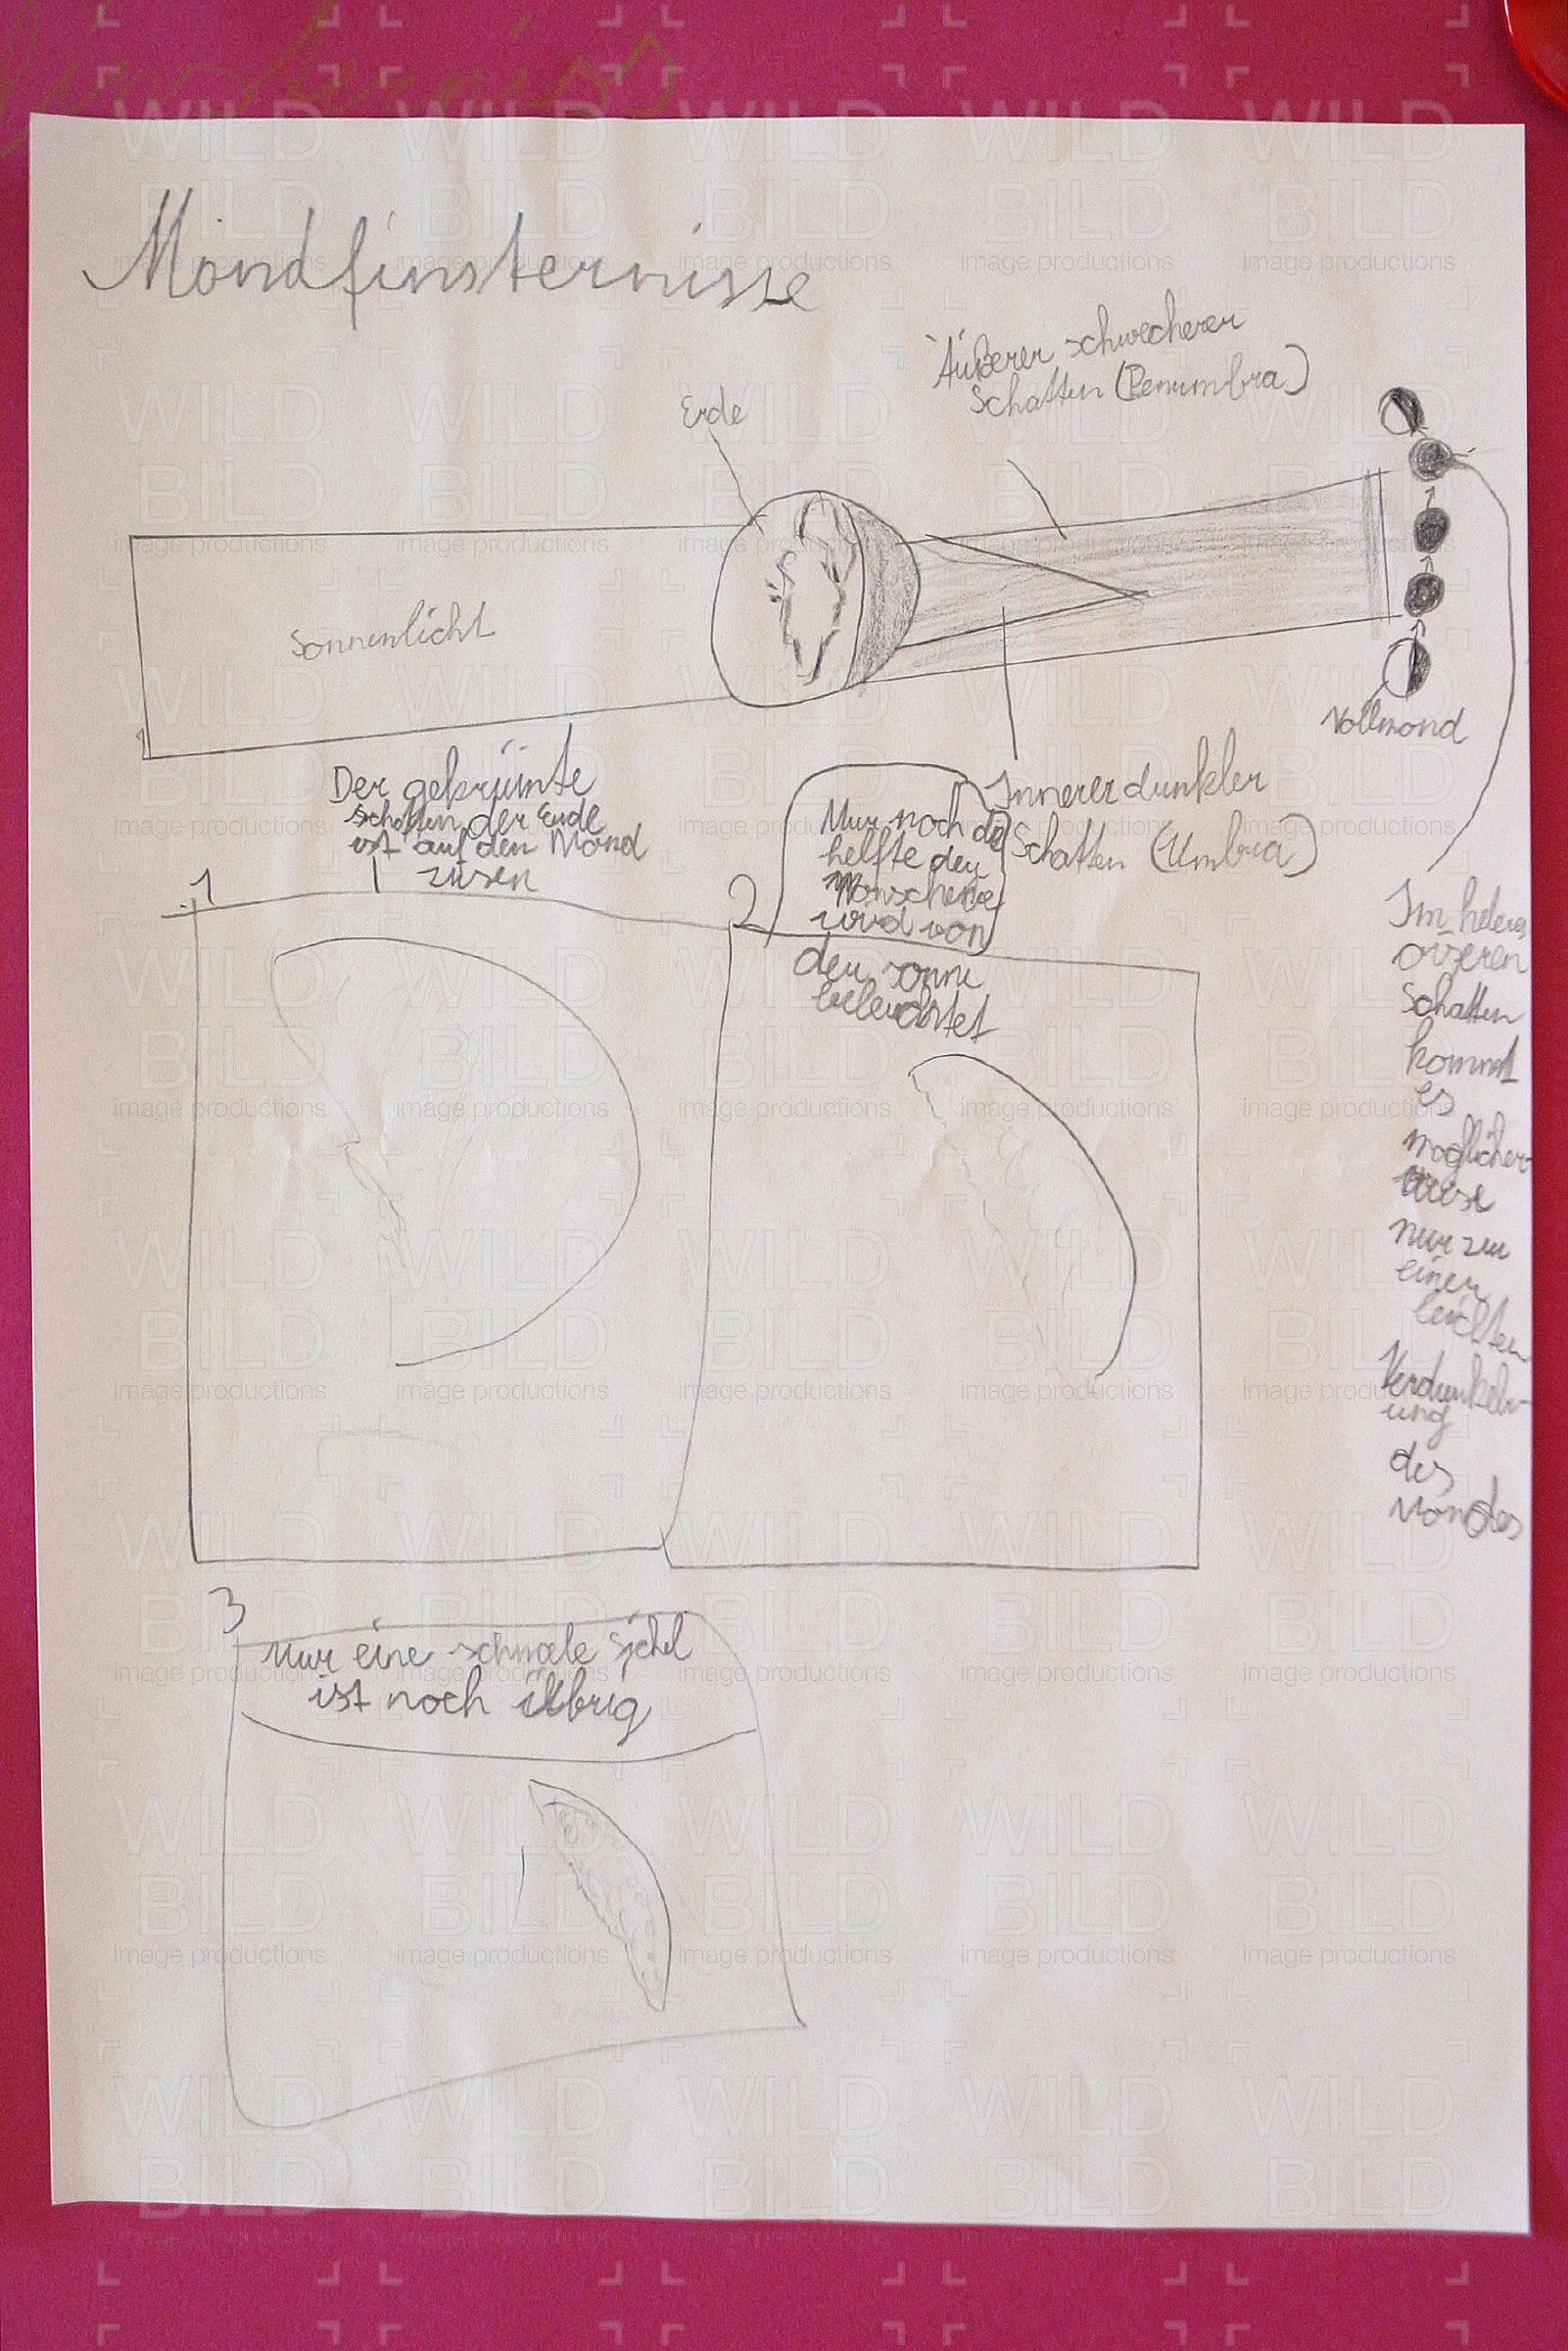 Mondfinsternisse
Äußerer schwecherer
Schatten (Penumbra)
Erde
Sonnenlicht
Vollmond
Innerer dunkler
Schatten (Umbra)
Der gekrümte
schatten der Erde
ist auf den Mond
zusen
1
2
Nur noch die
helfte der
Monscheibe
wird von
der sonne
beleuchtet
Im helera
oißeren
Schatten
kommt
es
moglicher
weise
nur zu
einer
leichten
Verdunkelu-
ung
des
Mondes
3
Nur eine schmale Sichel
ist noch übrig
WILD
BILD
image productions